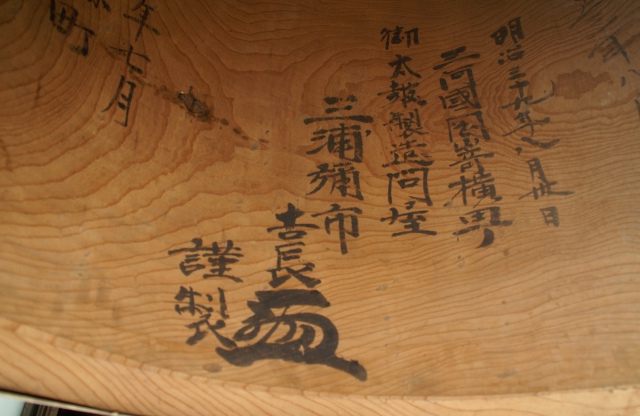 明治三十九年八月卅日
三河國岡崎横町
御太皷製造問屋
三浦彌市
吉長
謹製
年七月
町